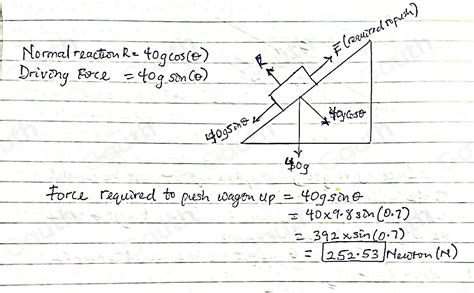 Normal reaction R = 40gcos(θ)
Driving Force = 40gsin(θ)
R
F (required to push)
40gsinθ
40gcosθ
40g
Force required to push wagon up = 40gsinθ
= 40×9.8sin(0.7)
= 392×sin(0.7)
= 252.53 Newton (N)